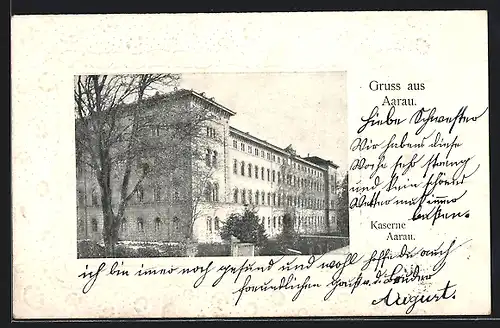 Gruss aus
Aarau.
Liebe Schwester
Wir haben diese
Woche sehr streng
und kein schönes
Wetter mal immer
Kaserne
Aarau.
ich bin imer noch gesund und wohl hoffe du auch
freundlichen Gruss v. d. Bruder
August.